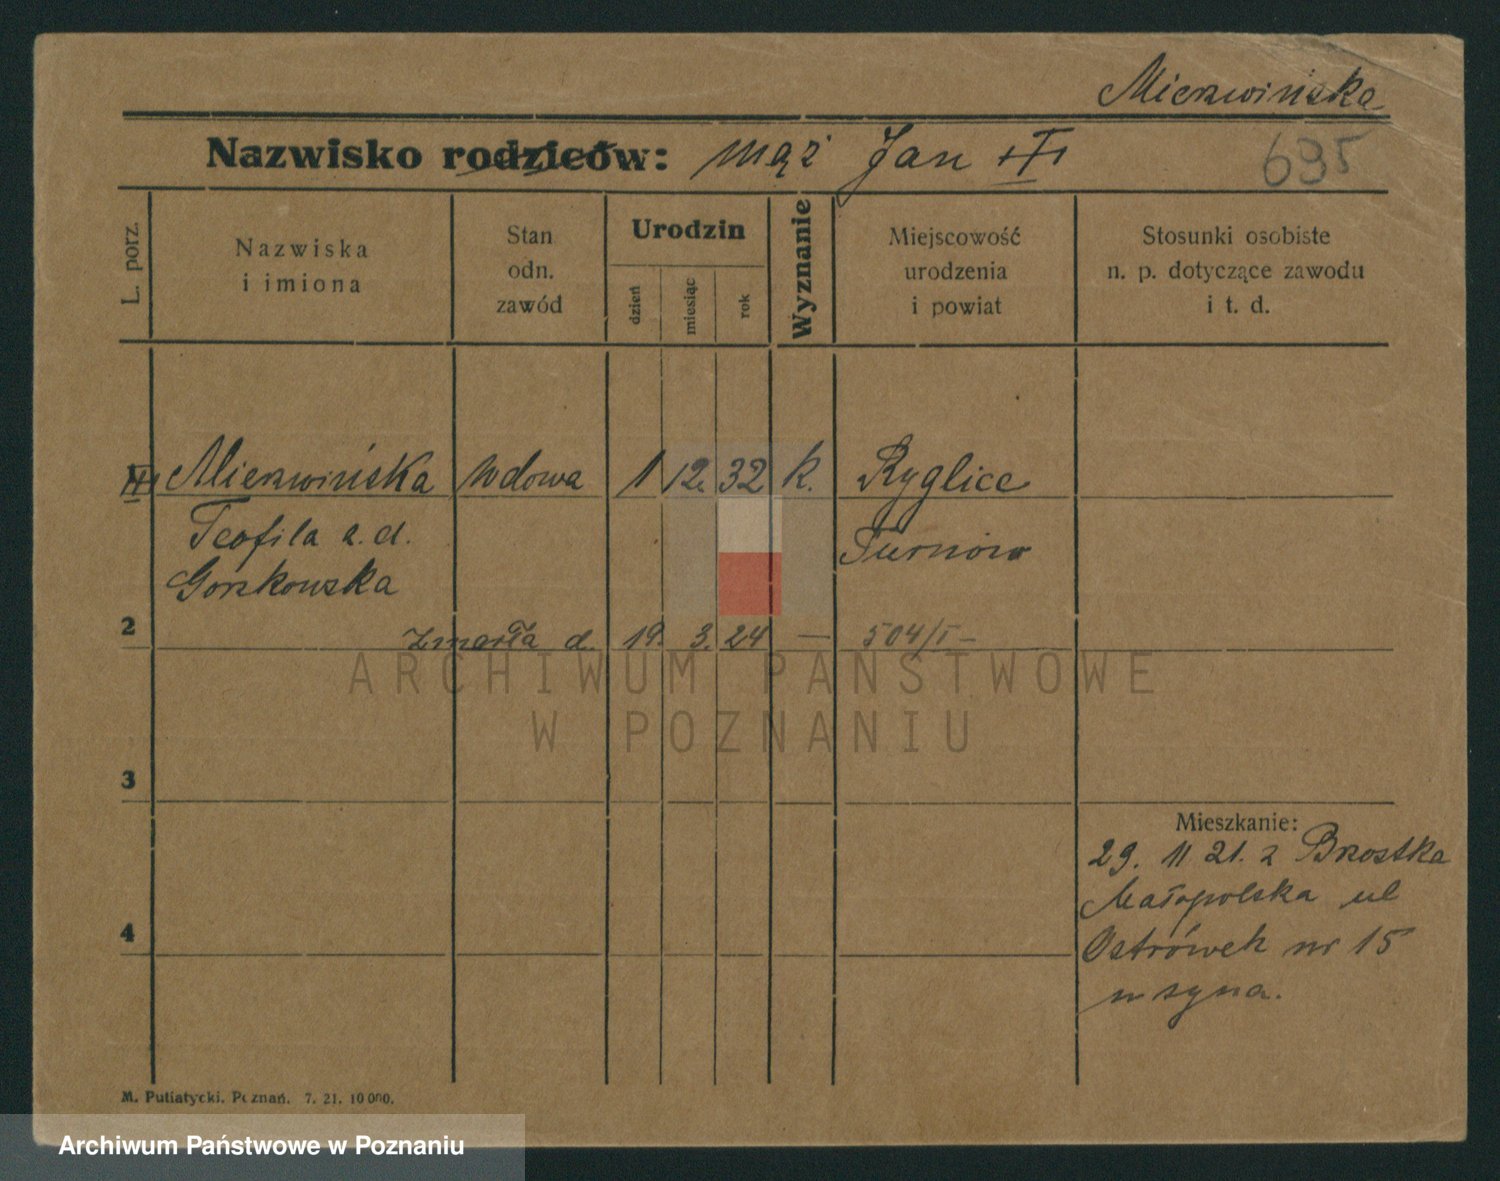 Mierzwińska
Nazwisko rodziców: mąż Jan
695
L. porz.
Nazwiska
i imiona
Stan
odn.
zawód
Urodzin
dzień
miesiąc
rok
Wyznanie
Miejscowość
urodzenia
i powiat
Stosunki osobiste
n. p. dotyczące zawodu
i t. d.
Mierzwińska wdowa 1 12. 32 k. Ryglice
Teofila z. d. Turnów
Gorzkowska
2 zmarła d. 19. 3. 24 — 504/I –
3
Mieszkanie:
29. 11 21. z Brzostka
Małopolska ul
4
Ostrówek nr 15
u syna.
M. Putiatycki, Poznań. 7. 21. 10 000.
ARCHIWUM PAŃSTWOWE
W POZNANIU
Archiwum Państwowe w Poznaniu